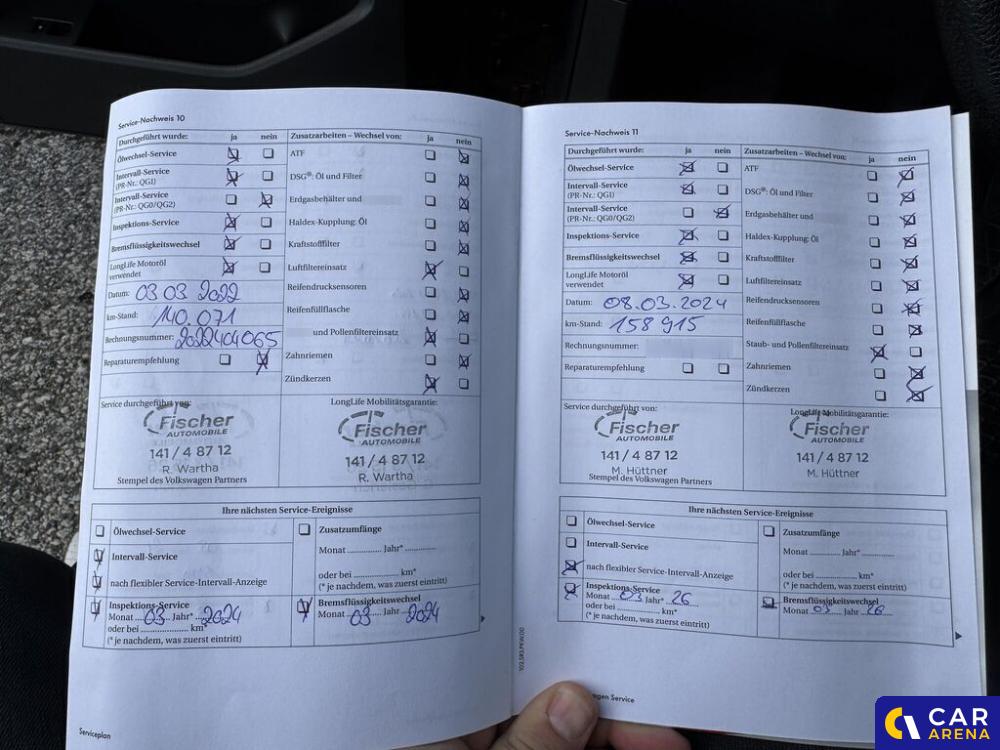 Service-Nachweis 10
Durchgeführt wurde: ja nein
Ölwechsel-Service
Intervall-Service
(PR-Nr.: QG1)
Intervall-Service
(PR-Nr.: QG0/QG2)
Inspektions-Service
Bremsflüssigkeitswechsel
LongLife Motoröl
verwendet
Datum: 03 03 2022
km-Stand: 140.071
Rechnungsnummer: 2022404065
Reparaturempfehlung
Zusatzarbeiten – Wechsel von: ja nein
ATF
DSG®: Öl und Filter
Erdgasbehälter und
Haldex-Kupplung: Öl
Kraftstofffilter
Luftfiltereinsatz
Reifendrucksensoren
Reifenfüllflasche
und Pollenfiltereinsatz
Zahnriemen
Zündkerzen
Service durchgeführt von:
Fischer
AUTOMOBILE
141 / 4 87 12
R. Wartha
Stempel des Volkswagen Partners
LongLife Mobilitätsgarantie:
Fischer
AUTOMOBILE
141 / 4 87 12
R. Wartha
Ihre nächsten Service-Ereignisse
Ölwechsel-Service
Intervall-Service
nach flexibler Service-Intervall-Anzeige
Inspektions-Service
Monat 03 Jahr* 2024
oder bei .................... km*
(* je nachdem, was zuerst eintritt)
Zusatzumfänge
Monat ............ Jahr* ............
oder bei .................... km*
(* je nachdem, was zuerst eintritt)
Bremsflüssigkeitswechsel
Monat 03 Jahr 2024
Serviceplan
Service-Nachweis 11
Durchgeführt wurde: ja nein
Ölwechsel-Service
Intervall-Service
(PR-Nr.: QG1)
Intervall-Service
(PR-Nr.: QG0/QG2)
Inspektions-Service
Bremsflüssigkeitswechsel
LongLife Motoröl
verwendet
Datum: 08.03.2024
km-Stand: 158 915
Rechnungsnummer:
Reparaturempfehlung
Zusatzarbeiten – Wechsel von: ja nein
ATF
DSG®: Öl und Filter
Erdgasbehälter und
Haldex-Kupplung: Öl
Kraftstofffilter
Luftfiltereinsatz
Reifendrucksensoren
Reifenfüllflasche
Staub- und Pollenfiltereinsatz
Zahnriemen
Zündkerzen
Service durchgeführt von:
Fischer
AUTOMOBILE
141 / 4 87 12
M. Hüttner
Stempel des Volkswagen Partners
LongLife Mobilitätsgarantie:
Fischer
AUTOMOBILE
141 / 4 87 12
M. Hüttner
Ihre nächsten Service-Ereignisse
Ölwechsel-Service
Intervall-Service
nach flexibler Service-Intervall-Anzeige
Inspektions-Service
Monat 03 Jahr* 26
oder bei .................... km*
(* je nachdem, was zuerst eintritt)
Zusatzumfänge
Monat ............ Jahr* ............
oder bei .................... km*
(* je nachdem, was zuerst eintritt)
Bremsflüssigkeitswechsel
Monat 03 Jahr 26
Service
CAR
ARENA